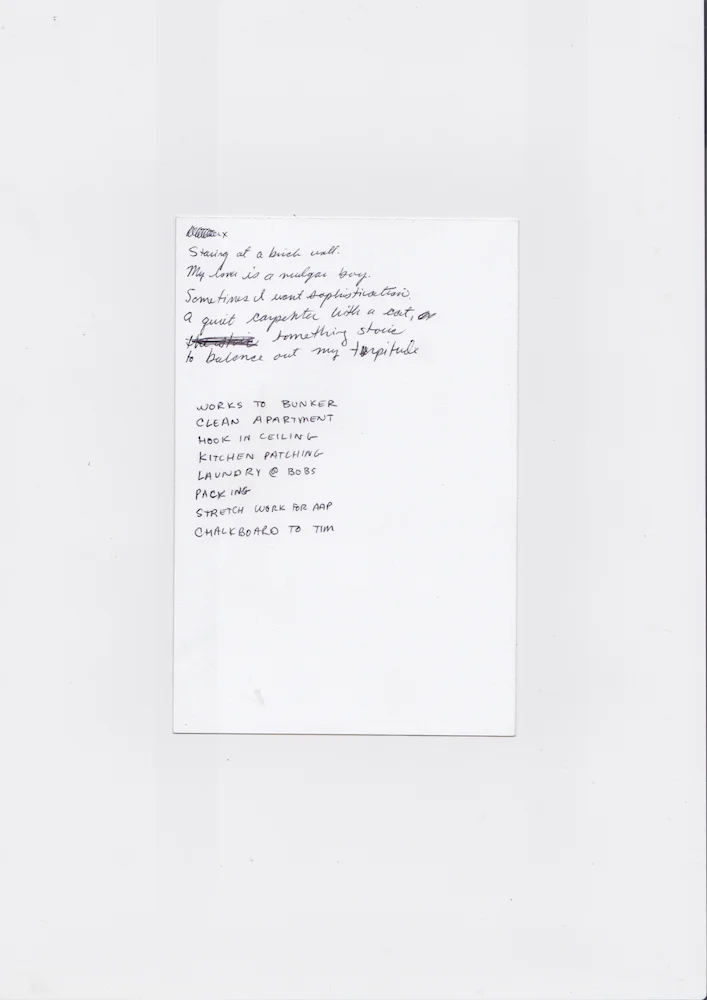 Staring at a brick wall.
My love is a vulgar boy.
Sometimes I want sophistication.
a quiet carpenter with a cat, or
something stoic
to balance out my turpitude
WORKS TO BUNKER
CLEAN APARTMENT
HOOK IN CEILING
KITCHEN PATCHING
LAUNDRY @ BOBS
PACKING
STRETCH WORK FOR AAP
CHALKBOARD TO TIM